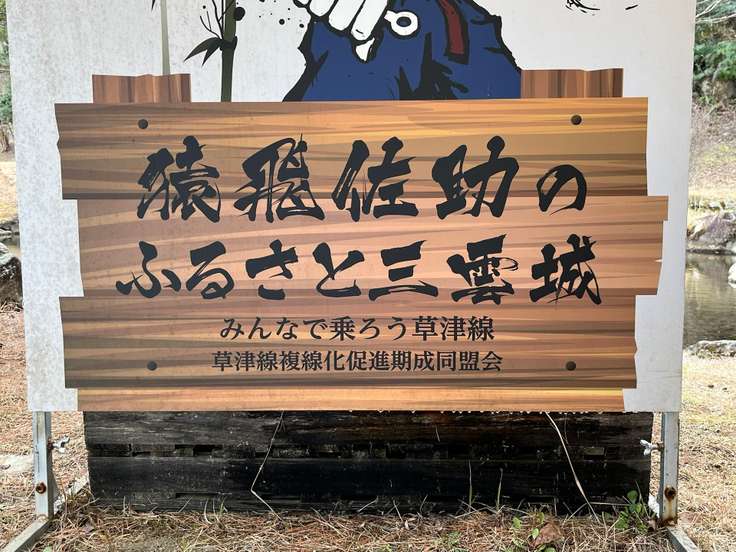 猿飛佐助の
ふるさと三雲城
みんなで乗ろう草津線
草津線複線化促進期成同盟会